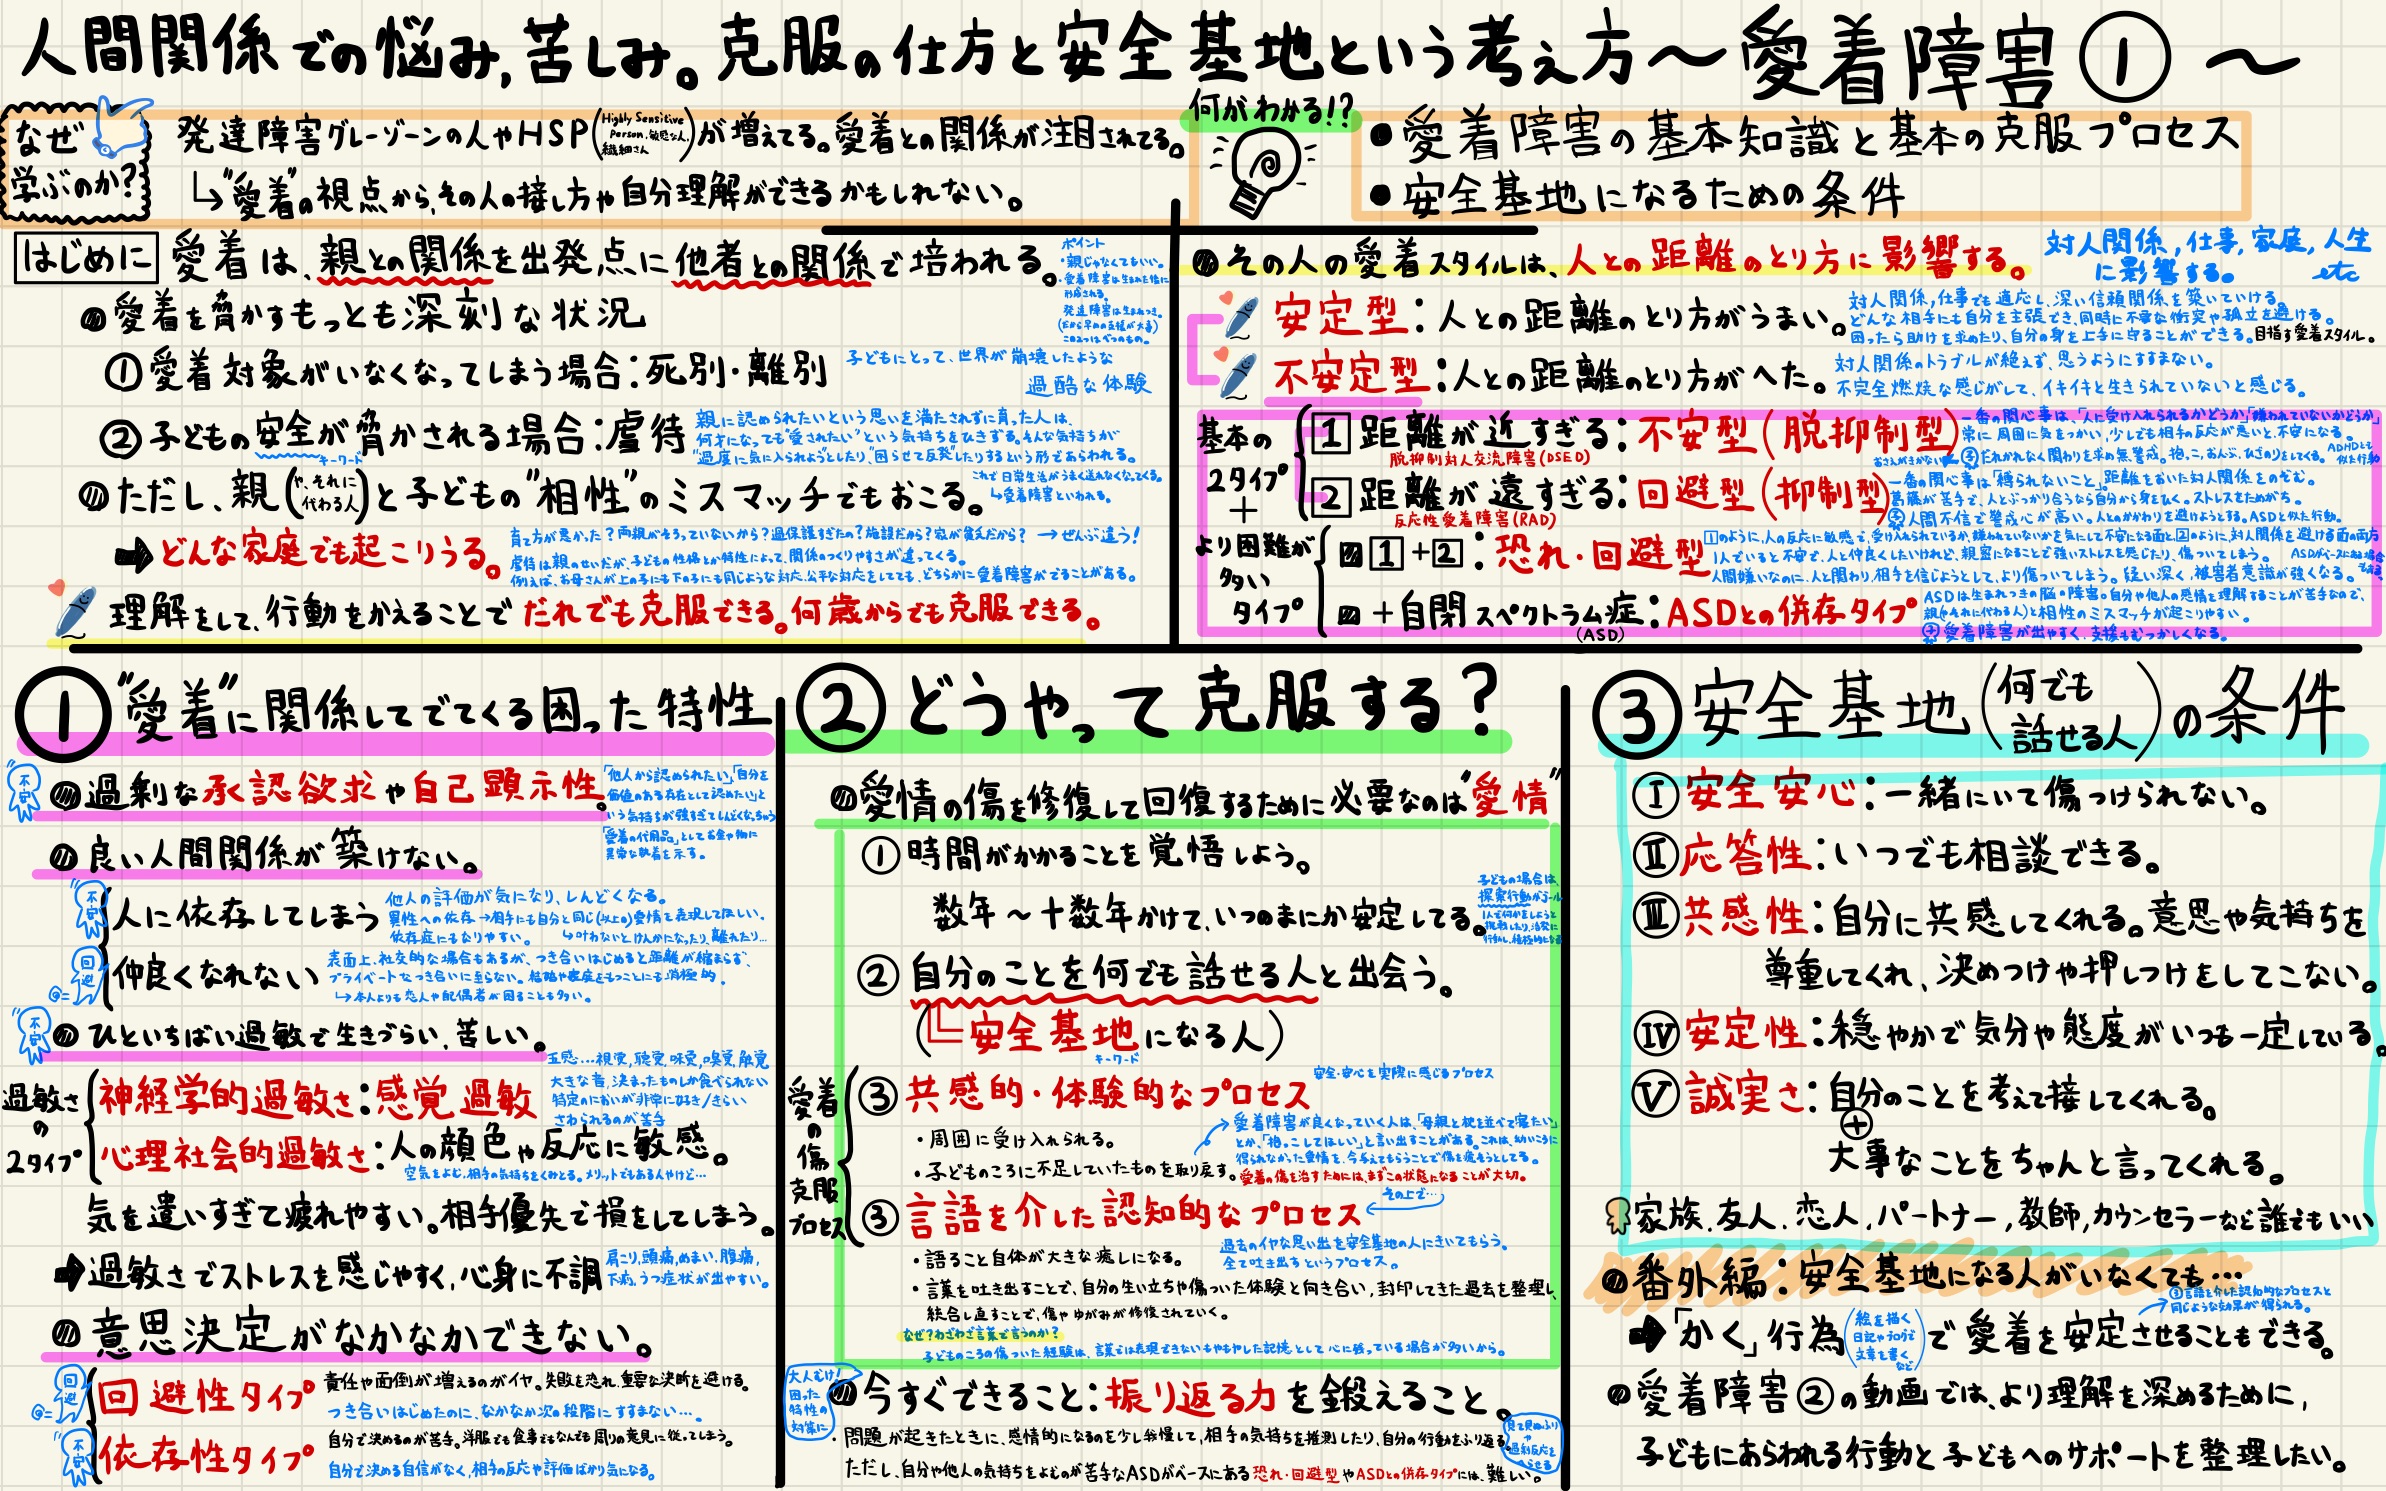 人間関係での悩み,苦しみ。克服の仕方と安全基地という考え方～愛着障害①～
なぜ
学ぶのか?
発達障害グレーゾーンの人やHSP(Highly Sensitive Person.敏感な人,繊細さん)が増えてる。愛着との関係が注目されてる。
↳"愛着"の視点から,その人の接し方や自分理解ができるかもしれない。
何がわかる!?
●愛着障害の基本知識と基本の克服プロセス
●安全基地になるための条件
はじめに 愛着は、親との関係を出発点に他者との関係で培われる。
ポイント
・親じゃなくてもいい。
・愛着障害は生まれた後に
形成される。
発達障害は生まれつき。
愛着を脅かすもっとも深刻な状況
①愛着対象がいなくなってしまう場合:死別・離別
子どもにとって、世界が崩壊したような
過酷な体験
②子どもの安全が脅かされる場合:虐待
キーワード
親に認められたいという思いを満たされずに育った人は、
何才になっても"愛されたい"という気持ちをひきずる。そんな気持ちが
"過度に気に入られよう"としたり,"困らせて反発"したりするという形であらわれる。
ただし、親(や、それに代わる人)と子どもの"相性"のミスマッチでもおこる。
これで日常生活がうまく送れなくなってくる。
↳愛着障害といわれる。
➡どんな家庭でも起こりうる。
育て方が悪かった?両親がそろっていないから?過保護すぎたの?施設だから?家が貧乏だから? →ぜんぶ違う!
虐待は親のせいだが、子どもの性格とか特性によって、関係のつくりやすさが違ってくる。
例えば、お母さんが上の子にも下の子にも同じような対応,公平な対応をしてても、どちらかに愛着障害がでることがある。
理解をして、行動をかえることでだれでも克服できる。何歳からでも克服できる。
その人の愛着スタイルは、人との距離のとり方に影響する。
対人関係,仕事,家庭,人生
に影響する。 etc
安定型:人との距離のとり方がうまい。
対人関係,仕事でも適応し、深い信頼関係を築いていける。
どんな相手にも自分を主張でき、同時に不要な衝突や孤立を避ける。
困ったら助けを求めたり、自分の身を上手に守ることができる。目指す愛着スタイル。
不安定型:人との距離のとり方がへた。
対人関係のトラブルが絶えず、思うようにすすまない。
不完全燃焼な感じがして、イキイキと生きられていないと感じる。
基本の
2タイプ
+
1 距離が近すぎる:不安型(脱抑制型)
脱抑制対人交流障害(DSED)
一番の関心事は、「人に受け入れられるかどうか」「嫌われていないかどうか」
常に周囲に気をつかい,少しでも相手の反応が悪いと、不安になる。
だれかれなく関わりを求め無警戒。抱っこ,おんぶ,ひざのりをしてくる。ADHDとも似た行動
2 距離が遠すぎる:回避型(抑制型)
反応性愛着障害(RAD)
一番の関心事は「縛られないこと」。距離をおいた対人関係をのぞむ。
葛藤が苦手で、人とぶつかり合うなら自分から身をひく。ストレスをためがち。
人間不信で警戒心が高い。人とのかかわりを避けようとする。ASDと似た行動。
より困難が
多い
タイプ
1+2:恐れ・回避型
1のように、人の反応に敏感で、受け入れられているか,嫌われていないかを気にして不安になる面と、2のように、対人関係を避ける面の両方
1人でいると不安で、人と仲良くしたいけれど、親密になることで強いストレスを感じたり、傷ついてしまう。
人間嫌いなのに、人と関わり,相手を信じようとして、より傷ついてしまう。疑い深く、被害者意識が強くなる。
+自閉スペクトラム症:ASDとの併存タイプ
(ASD)
ASDは生まれつきの脳の障害。自分や他人の感情を理解することが苦手なので、
親(やそれに代わる人)と相性のミスマッチが起こりやすい。
愛着障害が出やすく、支援もむつかしくなる。
①"愛着"に関係してでてくる困った特性
不安
過剰な承認欲求や自己顕示性。
「他人から認められたい」「自分を
価値のある存在として認めたい」と
いう気持ちが強すぎてしんどくなっちゃう
「愛着の代用品」としてお金や物に
異常な執着を示す。
良い人間関係が築けない。
不安
人に依存してしまう
他人の評価が気になり、しんどくなる。
異性への依存→相手にも自分と同じ(以上の)愛情を表現してほしい、
依存症にもなりやすい。 ↳叶わないとけんかになったり、離れたり…
回避
仲良くなれない
表面上、社交的な場合もあるが、つき合いはじめると距離が縮まらず、
プライベートなつき合いに至らない。結婚や家庭をもつことにも消極的.
↳本人よりも恋人や配偶者が困ることも多い。
不安
ひといちばい過敏で生きづらい、苦しい。
五感…視覚,聴覚,味覚,嗅覚,触覚
過敏さ
の
2タイプ
神経学的過敏さ:感覚過敏
大きな音,決まったものしか食べられない
特定のにおいが非常に好き/きらい
さわられるのが苦手
心理社会的過敏さ:人の顔色や反応に敏感。
空気をよむ,相手の気持ちをくみとる。メリットでもあるんやけど…
気を遣いすぎて疲れやすい。相手優先で損をしてしまう。
➡過敏さでストレスを感じやすく,心身に不調
肩こり,頭痛,めまい,腹痛,
下痢,うつ症状が出やすい。
意思決定がなかなかできない。
回避
回避性タイプ
責任や面倒が増えるのがイヤ。失敗を恐れ,重要な決断を避ける。
つき合いはじめたのに、なかなか次の段階にすすまない…。
不安
依存性タイプ
自分で決めるのが苦手。洋服でも食事でもなんでも周りの意見に従ってしまう。
自分で決める自信がなく、相手の反応や評価ばかり気になる。
②どうやって克服する?
愛情の傷を修復して回復するために必要なのは"愛情"
①時間がかかることを覚悟しよう。
数年～十数年かけて、いつのまにか安定してる。
子どもの場合は、
探索行動がゴール
1人で何かをしようと
挑戦したり、活発に
行動し、積極的になる
②自分のことを何でも話せる人と出会う。
(安全基地になる人)
キーワード
愛着
の
傷
克服
プロセス
③共感的・体験的なプロセス
安全・安心を実際に感じるプロセス
・周囲に受け入れられる。
・子どものころに不足していたものを取り戻す。
愛着障害が良くなっていく人は、「母親と枕を並べて寝たい」
とか、「抱っこしてほしい」と言い出すことがある。これは、幼いころに
得られなかった愛情を、今与えてもらうことで傷を癒そうとしてる。
愛着の傷を治すためには、まずこの状態になることが大切。
その上で…
③言語を介した認知的なプロセス
・語ること自体が大きな癒しになる。
過去のイヤな思い出を安全基地の人にきいてもらう。
全て吐き出すというプロセス。
・言葉を吐き出すことで、自分の生い立ちや傷ついた体験と向き合い,封印してきた過去を整理し
統合し直すことで、傷やゆがみが修復されていく。
なぜ?わざわざ言葉で言うのか?
子どものころの傷ついた経験は、言葉では表現できないもやもやした記憶として心に残っている場合が多いから。
大人むけ!
困った
特性の
対策に
今すぐできること:振り返る力を鍛えること。
・問題が起きたときに、感情的になるのを少し我慢して,相手の気持ちを推測したり,自分の行動をふり返る。
見て見ぬふり
や
過剰反応を
へらせる
ただし、自分や他人の気持ちをよむのが苦手なASDがベースにある恐れ・回避型やASDとの併存タイプには、難しい。
③安全基地(何でも話せる人)の条件
Ⅰ安全安心:一緒にいて傷つけられない。
Ⅱ応答性:いつでも相談できる。
Ⅲ共感性:自分に共感してくれる。意思や気持ちを
尊重してくれ、決めつけや押しつけをしてこない。
Ⅳ安定性:穏やかで気分や態度がいつも一定している。
Ⅴ誠実さ:自分のことを考えて接してくれる。
+
大事なことをちゃんと言ってくれる。
家族,友人,恋人,パートナー,教師,カウンセラーなど誰でもいい
番外編:安全基地になる人がいなくても…
③言語を介した認知的なプロセスと
同じような効果が得られる。
➡「かく」行為(絵を描く 日記やブログで文章を書くなど)で愛着を安定させることもできる。
愛着障害②の動画では、より理解を深めるために,
子どもにあらわれる行動と子どもへのサポートを整理したい。